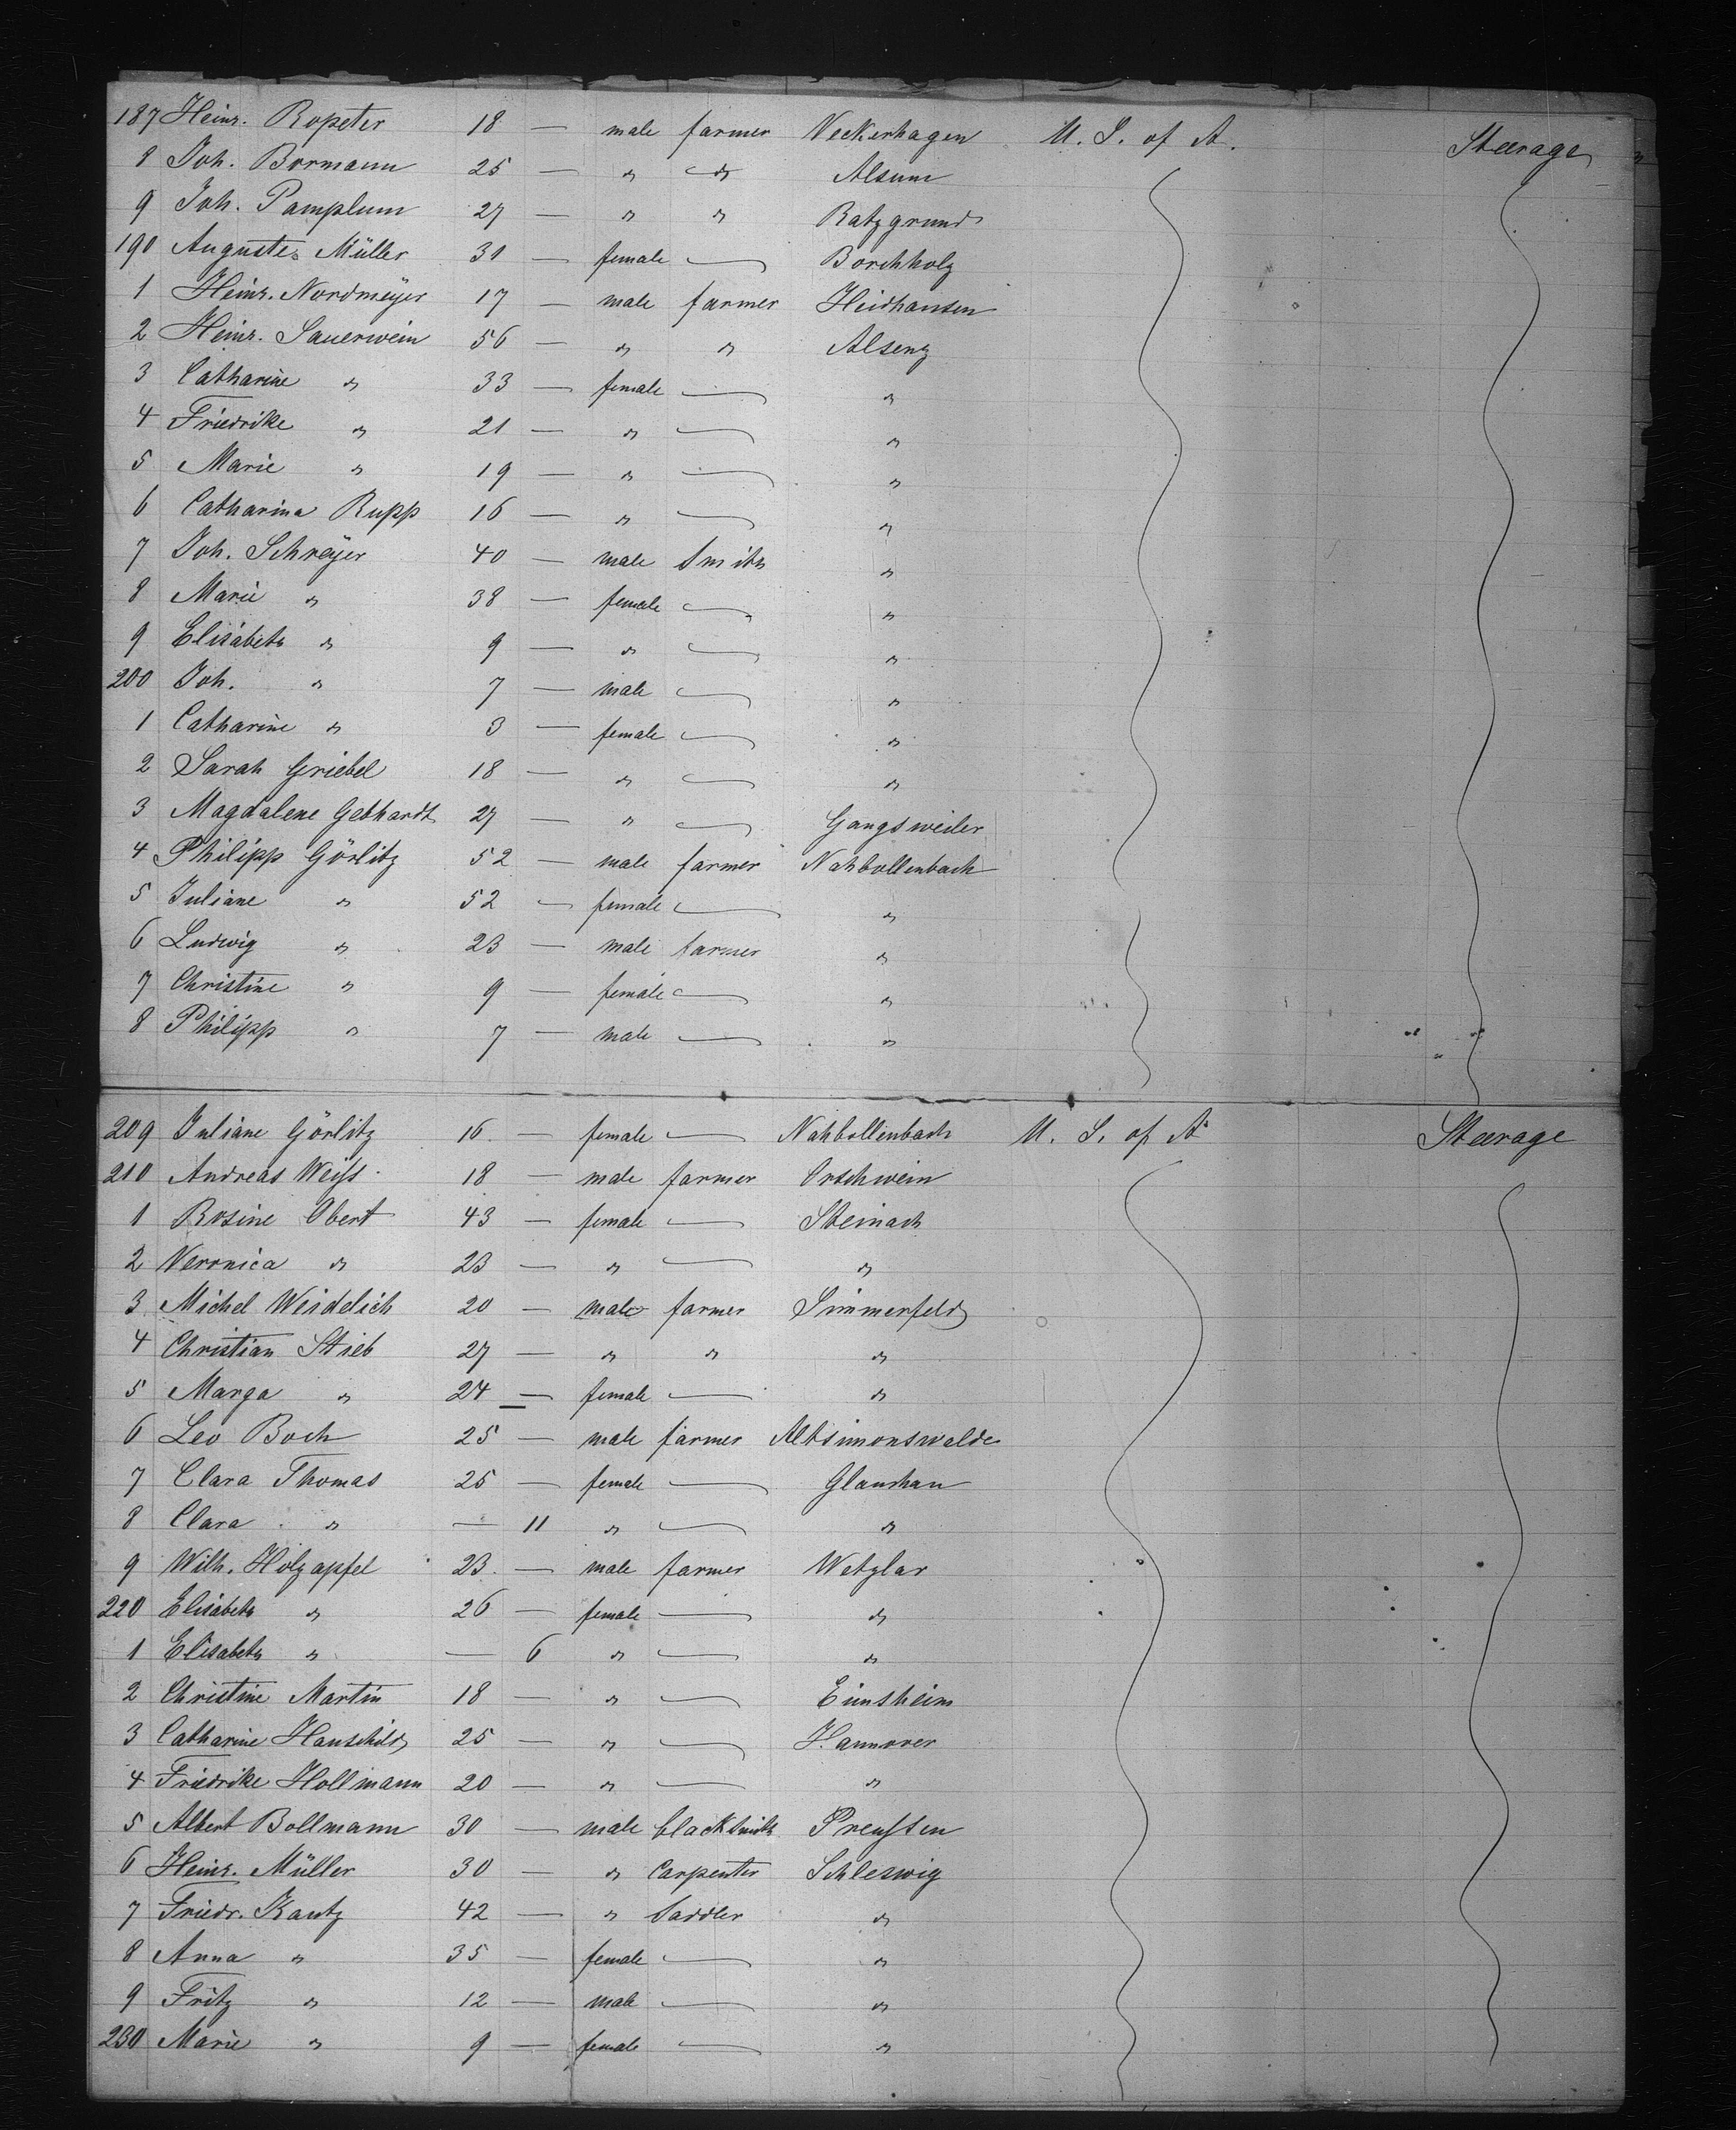 187 Heinr. Ropeter 18 — male farmer Veckerhagen U. S. of A. Steerage
8 Joh. Bormann 25 — " " Alsum
9 Joh. Pamplum 27 — " " Ratzgrund
190 Auguste Müller 31 — female — Borchholz
1 Heinr. Nordmeÿer 17 — male farmer Heidhausen
2 Heinr. Sauerwein 56 — " " Alsenz
3 Catharine " 33 — female — "
4 Friedrike " 21 — " — "
5 Marie " 19 — " — "
6 Catharina Rupp 16 — " — "
7 Joh. Schreÿer 40 — male Smith "
8 Marie " 38 — female — "
9 Elisabeth " 9 — " — "
200 Joh. " 7 — male — "
1 Catharine " 3 — female — "
2 Sarah Griebel 18 — " — "
3 Magdalene Gebhardt 27 — " — Gangsweiler
4 Philipp Görlitz 52 — male farmer Nahbollenbach
5 Juliane " 52 — female — "
6 Ludwig " 23 — male farmer "
7 Christine " 9 — female — "
8 Philipp " 7 — male — "
209 Juliane Görlitz 16 — female — Nahbollenbach U. S. of A. Steerage
210 Andreas Weiss 18 — male farmer Orschwein
1 Rosine Obert 43 — female — Steinach
2 Veronica " 23 — " — "
3 Michel Weidelich 20 — male farmer Simmerfeld
4 Christian Stieb 27 — " " "
5 Marga " 24 — female — "
6 Leo Boch 25 — male farmer Altsimonswalde
7 Clara Thomas 25 — female — Glauchau
8 Clara " — 11 " — "
9 Wilh. Holzapfel 23 — male farmer Wetzlar
220 Elisabeth " 26 — female — "
1 Elisabeth " — 6 " — "
2 Christine Martin 18 — " — Eimsheim
3 Catharine Hauschild 25 — " — Hannover
4 Friedrike Hollmann 20 — " — "
5 Albert Bollmann 30 — male blacksmith Preussen
6 Heinr. Müller 30 — " Carpenter Schleswig
7 Friedr. Kautz 42 — " Saddler "
8 Anna " 35 — female — "
9 Fritz " 12 — male — "
230 Marie " 9 — female — "